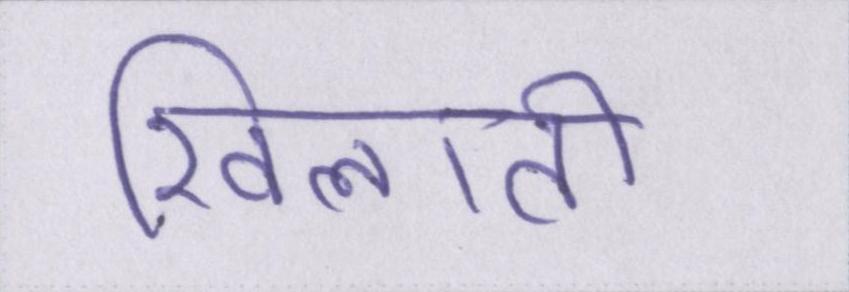 खिलाती